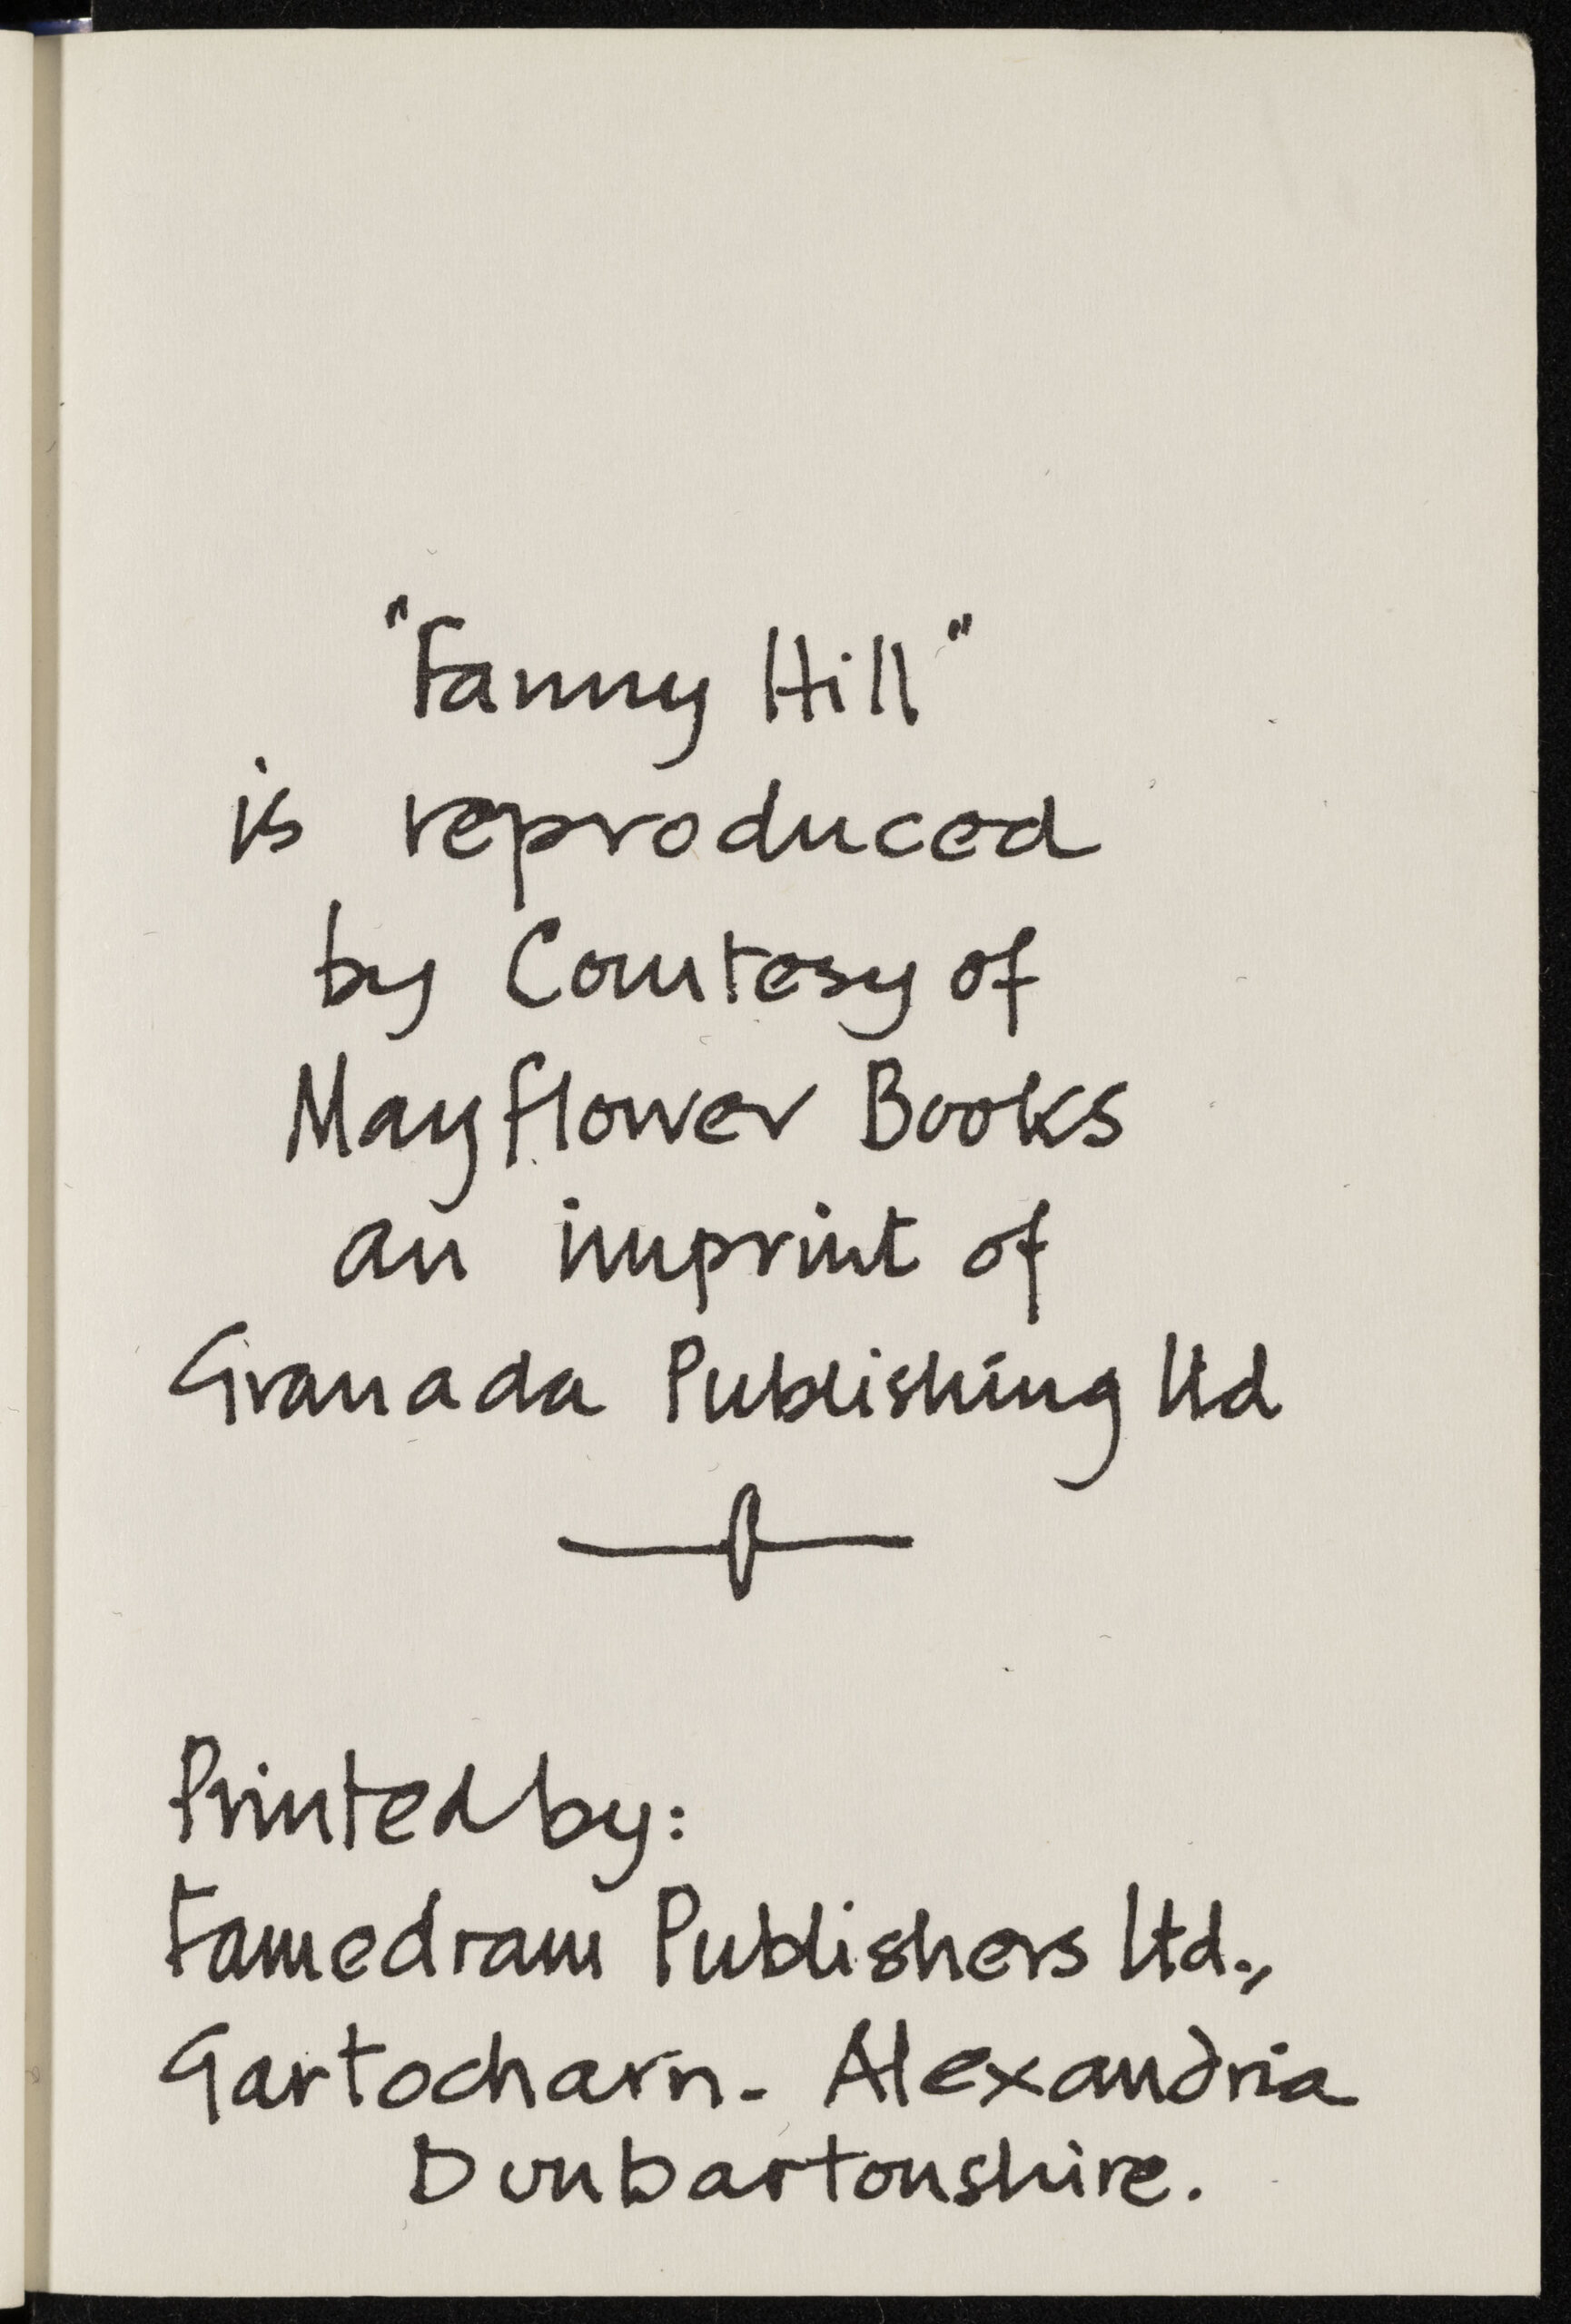 "Fanny Hill"
is reproduced
by Courtesy of
Mayflower Books
an imprint of
Granada Publishing ltd
Printed by:
Famedram Publishers ltd.,
Gartocharn - Alexandria
Dunbartonshire.